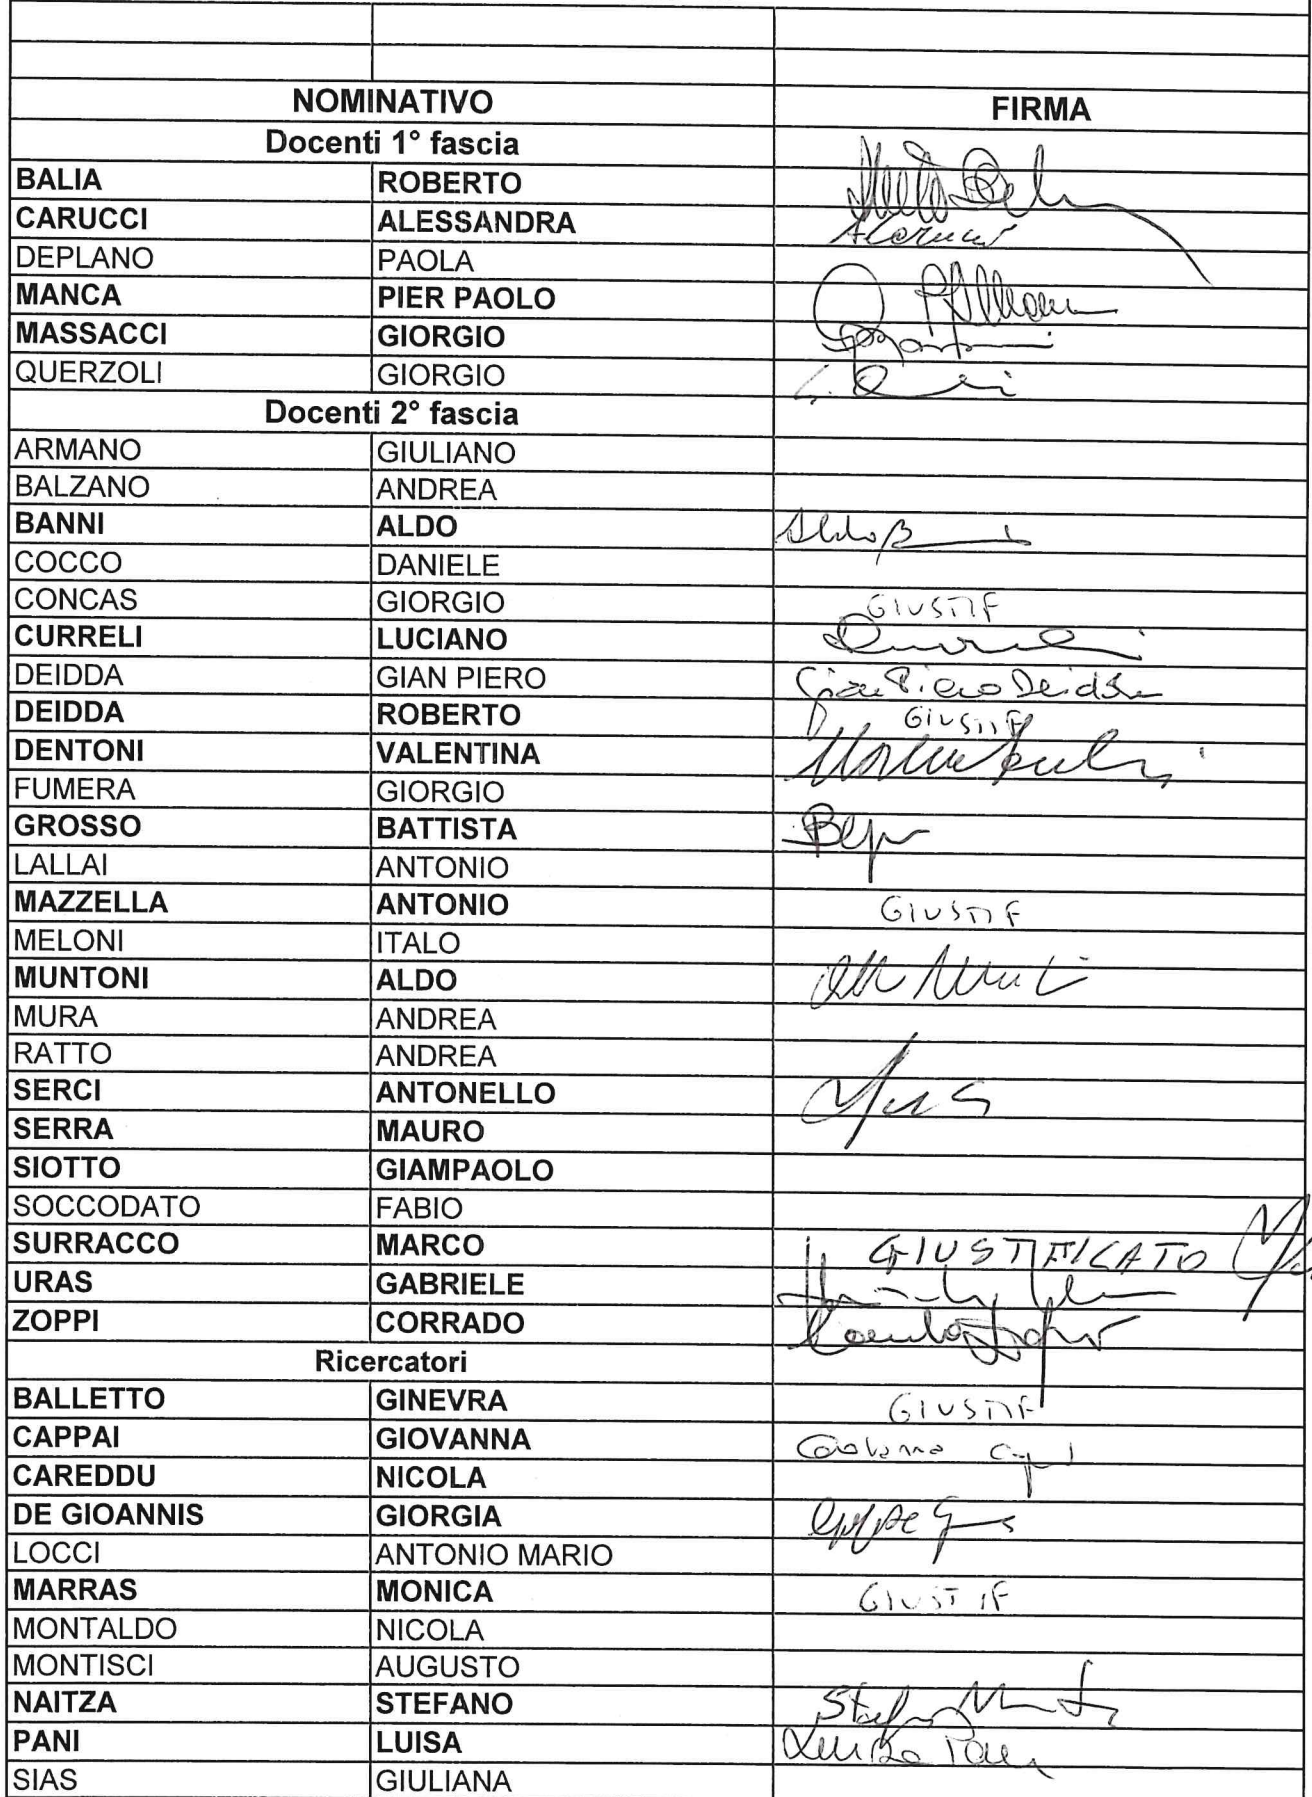 NOMINATIVO FIRMA
Docenti 1° fascia
BALIA ROBERTO
CARUCCI ALESSANDRA ACarucci
DEPLANO PAOLA
MANCA PIER PAOLO
MASSACCI GIORGIO
QUERZOLI GIORGIO
Docenti 2° fascia
ARMANO GIULIANO
BALZANO ANDREA
BANNI ALDO Aldo B
COCCO DANIELE
CONCAS GIORGIO GIUSTIF
CURRELI LUCIANO
DEIDDA GIAN PIERO Gian Piero Deidda
DEIDDA ROBERTO GIUSTIF
DENTONI VALENTINA
FUMERA GIORGIO
GROSSO BATTISTA
LALLAI ANTONIO
MAZZELLA ANTONIO GIUSTIF
MELONI ITALO
MUNTONI ALDO
MURA ANDREA
RATTO ANDREA
SERCI ANTONELLO
SERRA MAURO
SIOTTO GIAMPAOLO
SOCCODATO FABIO
SURRACCO MARCO GIUSTIFICATO
URAS GABRIELE
ZOPPI CORRADO
Ricercatori
BALLETTO GINEVRA GIUSTIF
CAPPAI GIOVANNA
CAREDDU NICOLA
DE GIOANNIS GIORGIA
LOCCI ANTONIO MARIO
MARRAS MONICA GIUSTIF
MONTALDO NICOLA
MONTISCI AUGUSTO
NAITZA STEFANO
PANI LUISA Luisa Pani
SIAS GIULIANA